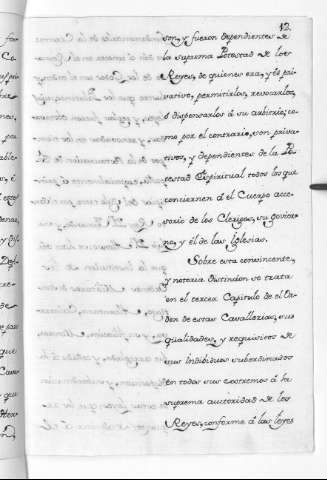 12.
son, y fueron dependientes de
la suprema Potestad de los
Reyes, de quienes era, y és pri-
vativo, permitirlos, revocarlos,
ó dispensarlos á su arbitrio; co-
mo por el contrario, son priva-
tivos, y dependientes de la Po-
testad Espiritual todos los que
conciernen á el Cuerpo acce-
sorio de los Clerigos, su govier-
no, y él de las Iglesias.
Sobre esta convincente,
y notoria distincion se trata
en el tercer Capitulo de el Or-
den de estas Cavallerias, sus
qualidades, y requisitos de
sus Individuos subordinados
en todos sus extremos á la
suprema autoridad de los
Reyes, conforme á las leyes